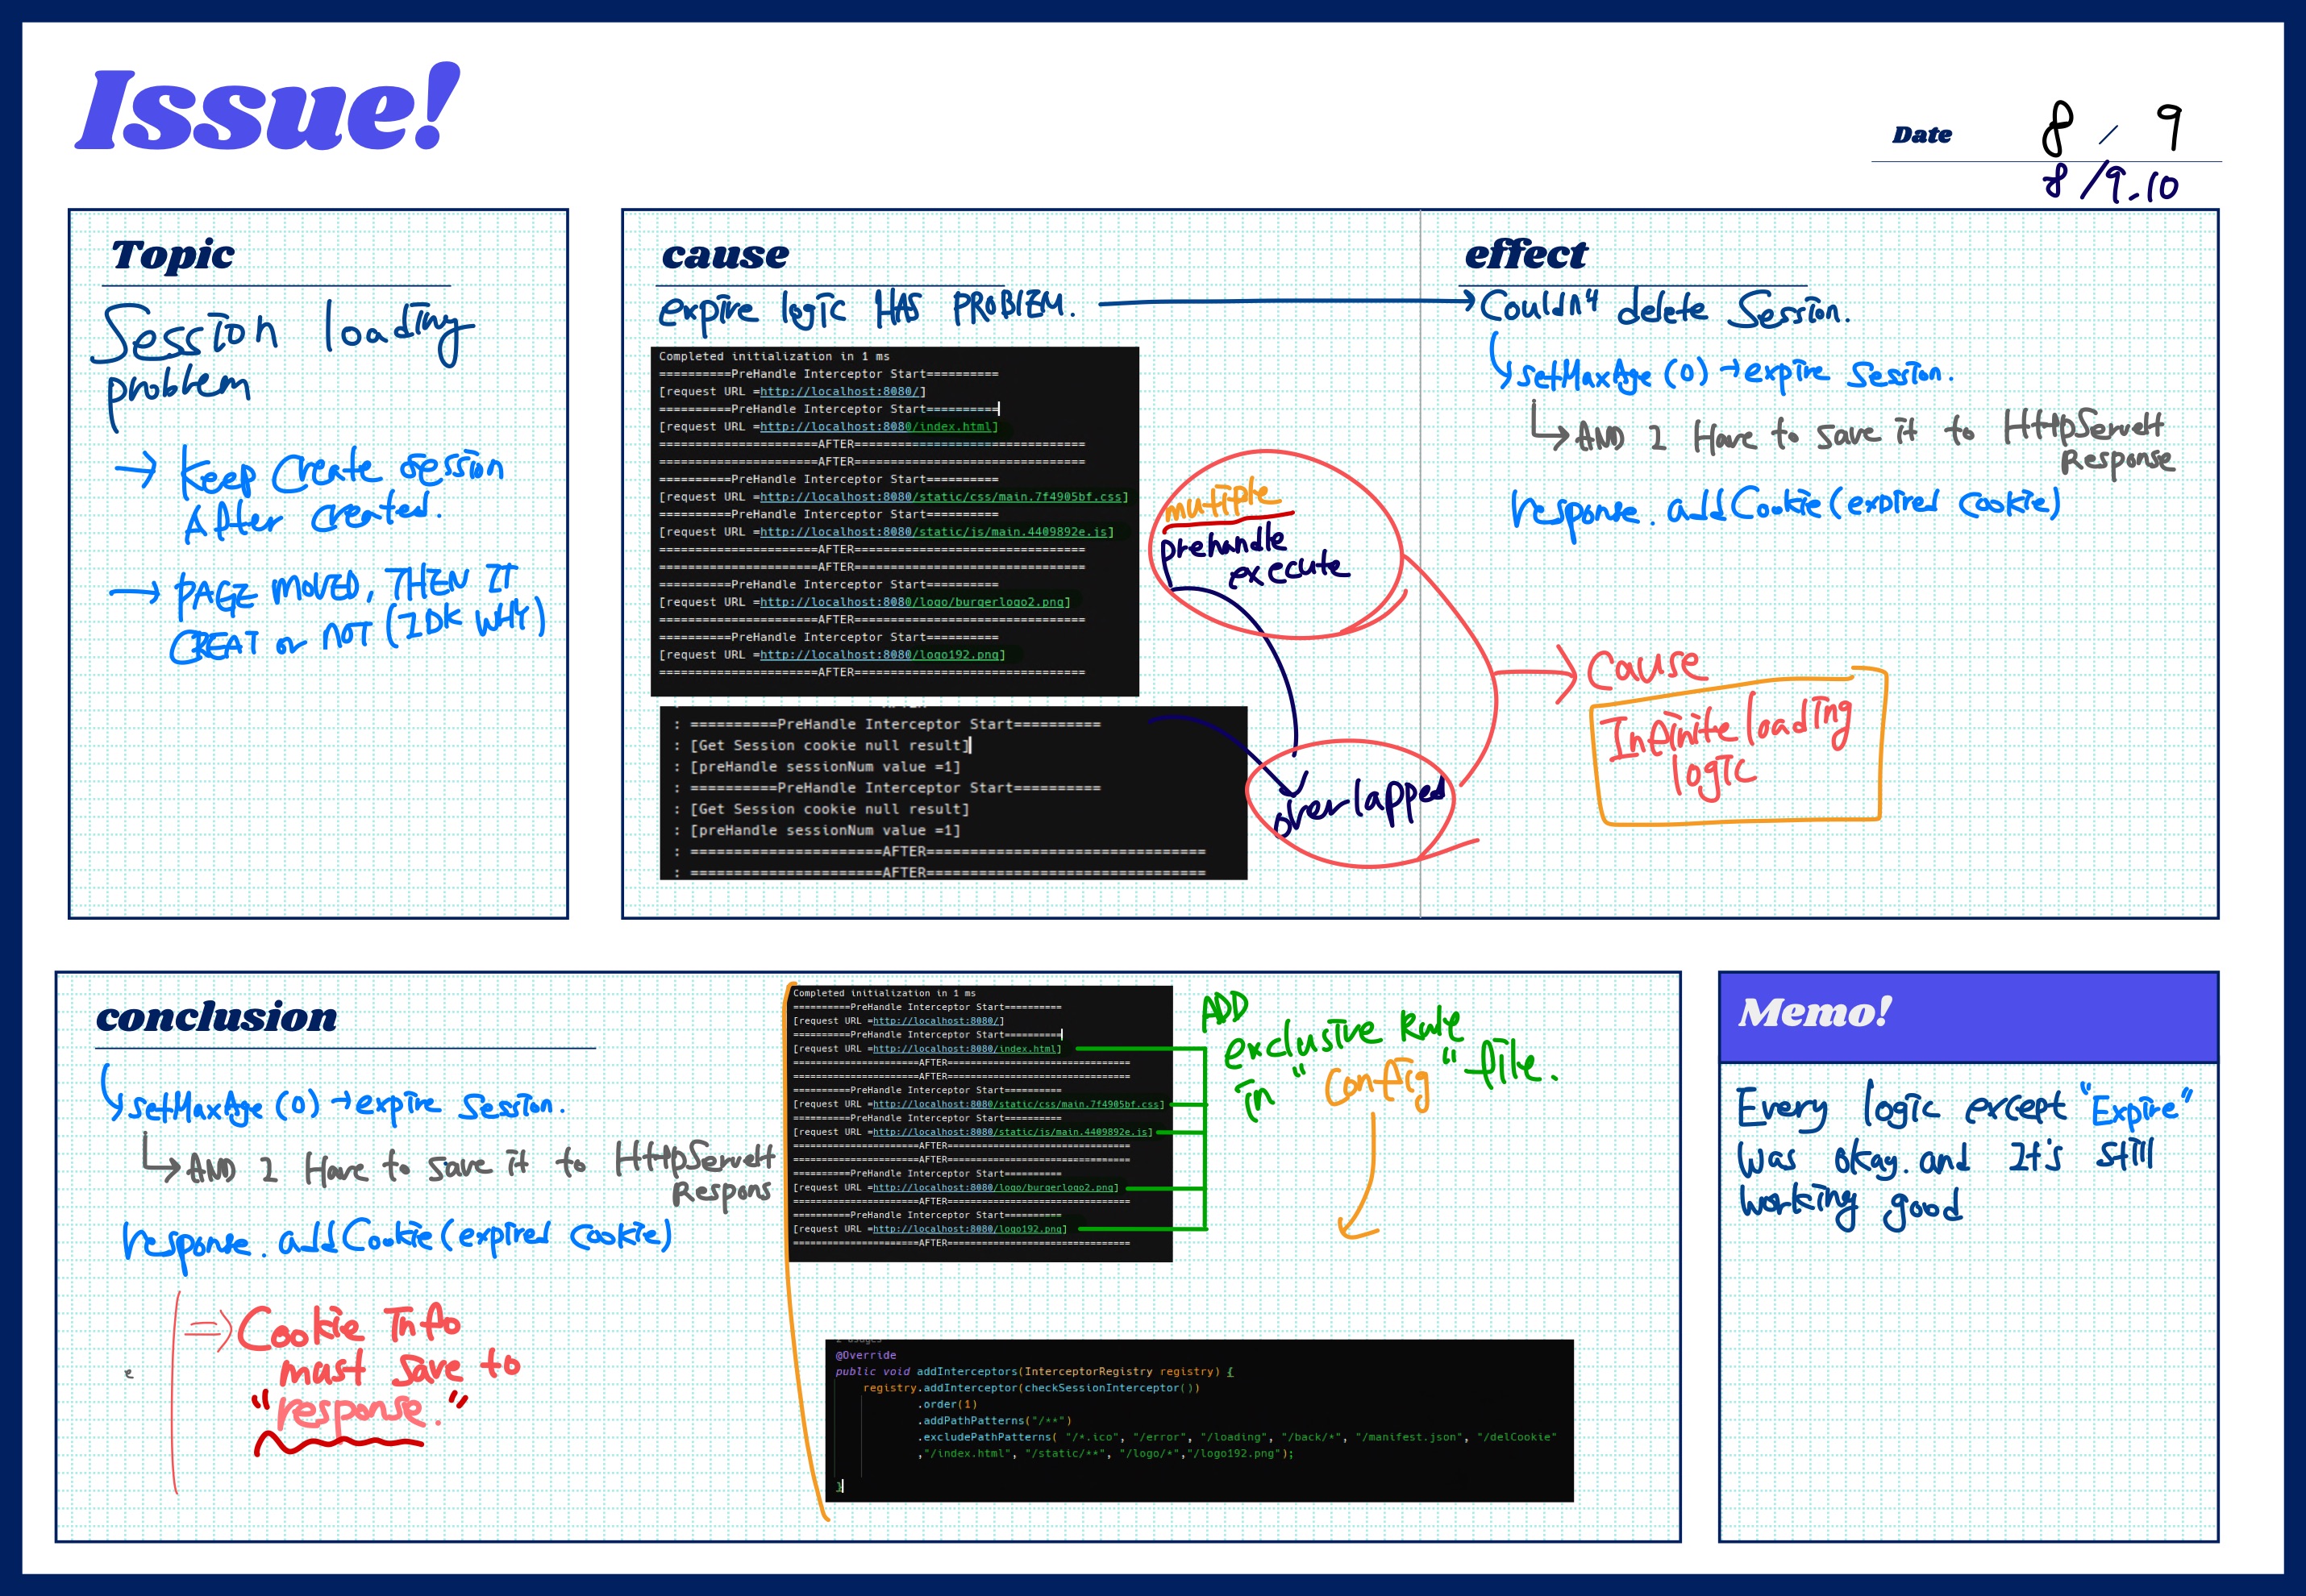 Issue!
Date 8 / 9
8/9.10
Topic
Session loading
problem
→ Keep Create session
After created.
→ PAGE MOVED, THEN IT
CREAT or NOT (IDK WHY)
cause
expire logic HAS PROBlEM.
Completed initialization in 1 ms
==========PreHandle Interceptor Start==========
[request URL =http://localhost:8080/]
==========PreHandle Interceptor Start==========
[request URL =http://localhost:8080/index.html]
======================AFTER================================
======================AFTER================================
==========PreHandle Interceptor Start==========
[request URL =http://localhost:8080/static/css/main.7f4905bf.css]
==========PreHandle Interceptor Start==========
[request URL =http://localhost:8080/static/js/main.4409892e.js]
======================AFTER================================
======================AFTER================================
==========PreHandle Interceptor Start==========
[request URL =http://localhost:8080/logo/burgerlogo2.png]
======================AFTER================================
==========PreHandle Interceptor Start==========
[request URL =http://localhost:8080/logo192.png]
======================AFTER================================
mutiple
prehandle
execute
: ==========PreHandle Interceptor Start==========
: [Get Session cookie null result]
: [preHandle sessionNum value =1]
: ==========PreHandle Interceptor Start==========
: [Get Session cookie null result]
: [preHandle sessionNum value =1]
: ======================AFTER================================
: ======================AFTER================================
overlapped
effect
Couldn't delete Session.
setMaxAge (0) → expire Session.
AND I Have to save it to HttpServelt
Response
response. addCookie (expired cookie)
Cause
Infinite loading
logic
conclusion
setMaxAge (0) → expire Session.
AND I Have to save it to HttpServelt
Respons
response. addCookie (expired cookie)
⇒ Cookie Info
mast save to
"response."
e
Completed initialization in 1 ms
==========PreHandle Interceptor Start==========
[request URL =http://localhost:8080/]
==========PreHandle Interceptor Start==========
[request URL =http://localhost:8080/index.html]
======================AFTER================================
======================AFTER================================
==========PreHandle Interceptor Start==========
[request URL =http://localhost:8080/static/css/main.7f4905bf.css]
==========PreHandle Interceptor Start==========
[request URL =http://localhost:8080/static/js/main.4409892e.js]
======================AFTER================================
======================AFTER================================
==========PreHandle Interceptor Start==========
[request URL =http://localhost:8080/logo/burgerlogo2.png]
======================AFTER================================
==========PreHandle Interceptor Start==========
[request URL =http://localhost:8080/logo192.png]
======================AFTER================================
ADD
exclusive Rule
in "Config" file.
@Override
public void addInterceptors(InterceptorRegistry registry) {
registry.addInterceptor(checkSessionInterceptor())
.order(1)
.addPathPatterns("/**")
.excludePathPatterns( "/*.ico", "/error", "/loading", "/back/*", "/manifest.json", "/delCookie"
,"/index.html", "/static/**", "/logo/*","/logo192.png");
}
Memo!
Every logic except "Expire"
was okay. and It's still
working good